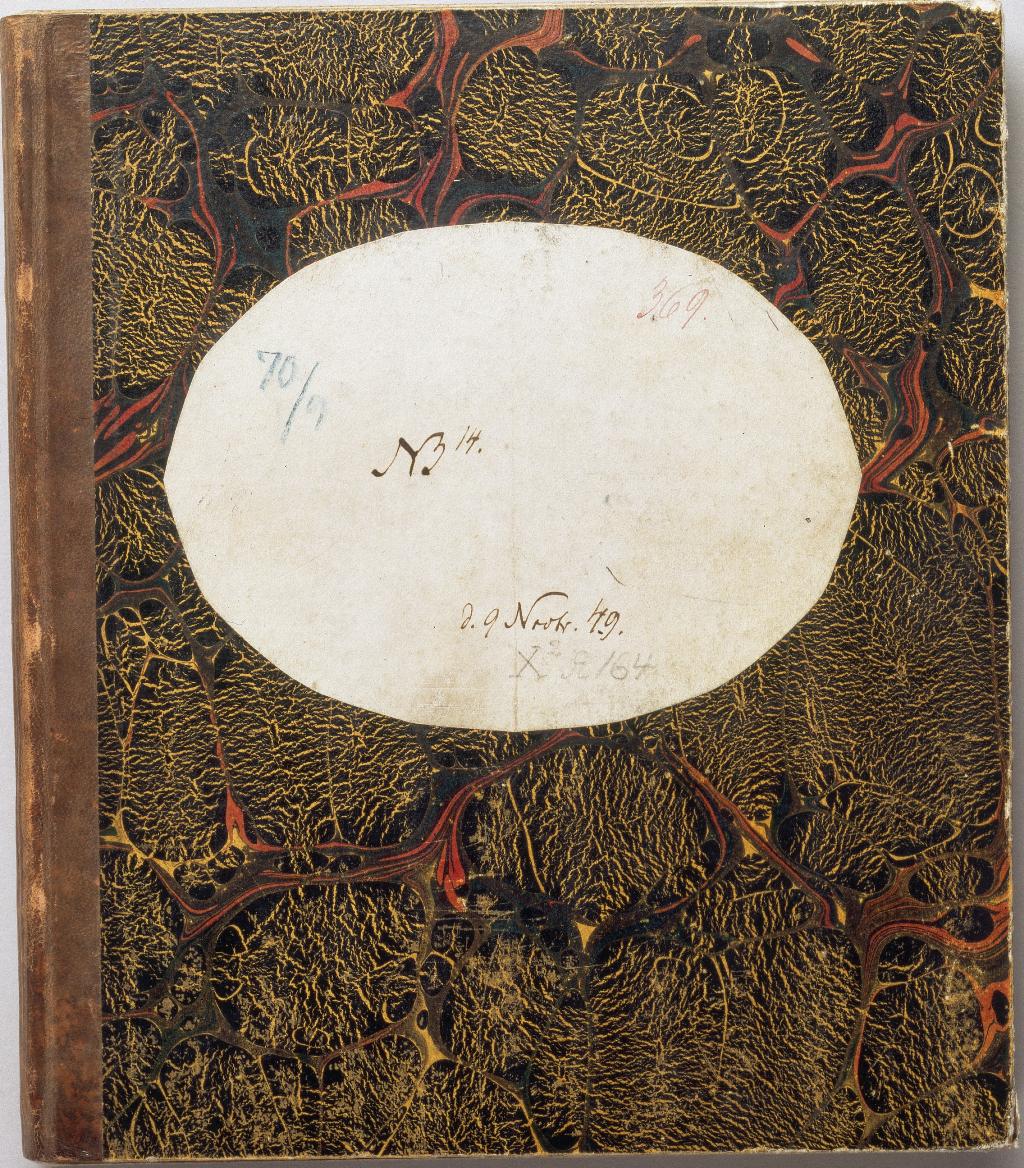 369.
70/9
NB 14.
d. 9 Novbr. 49.
X² R 164